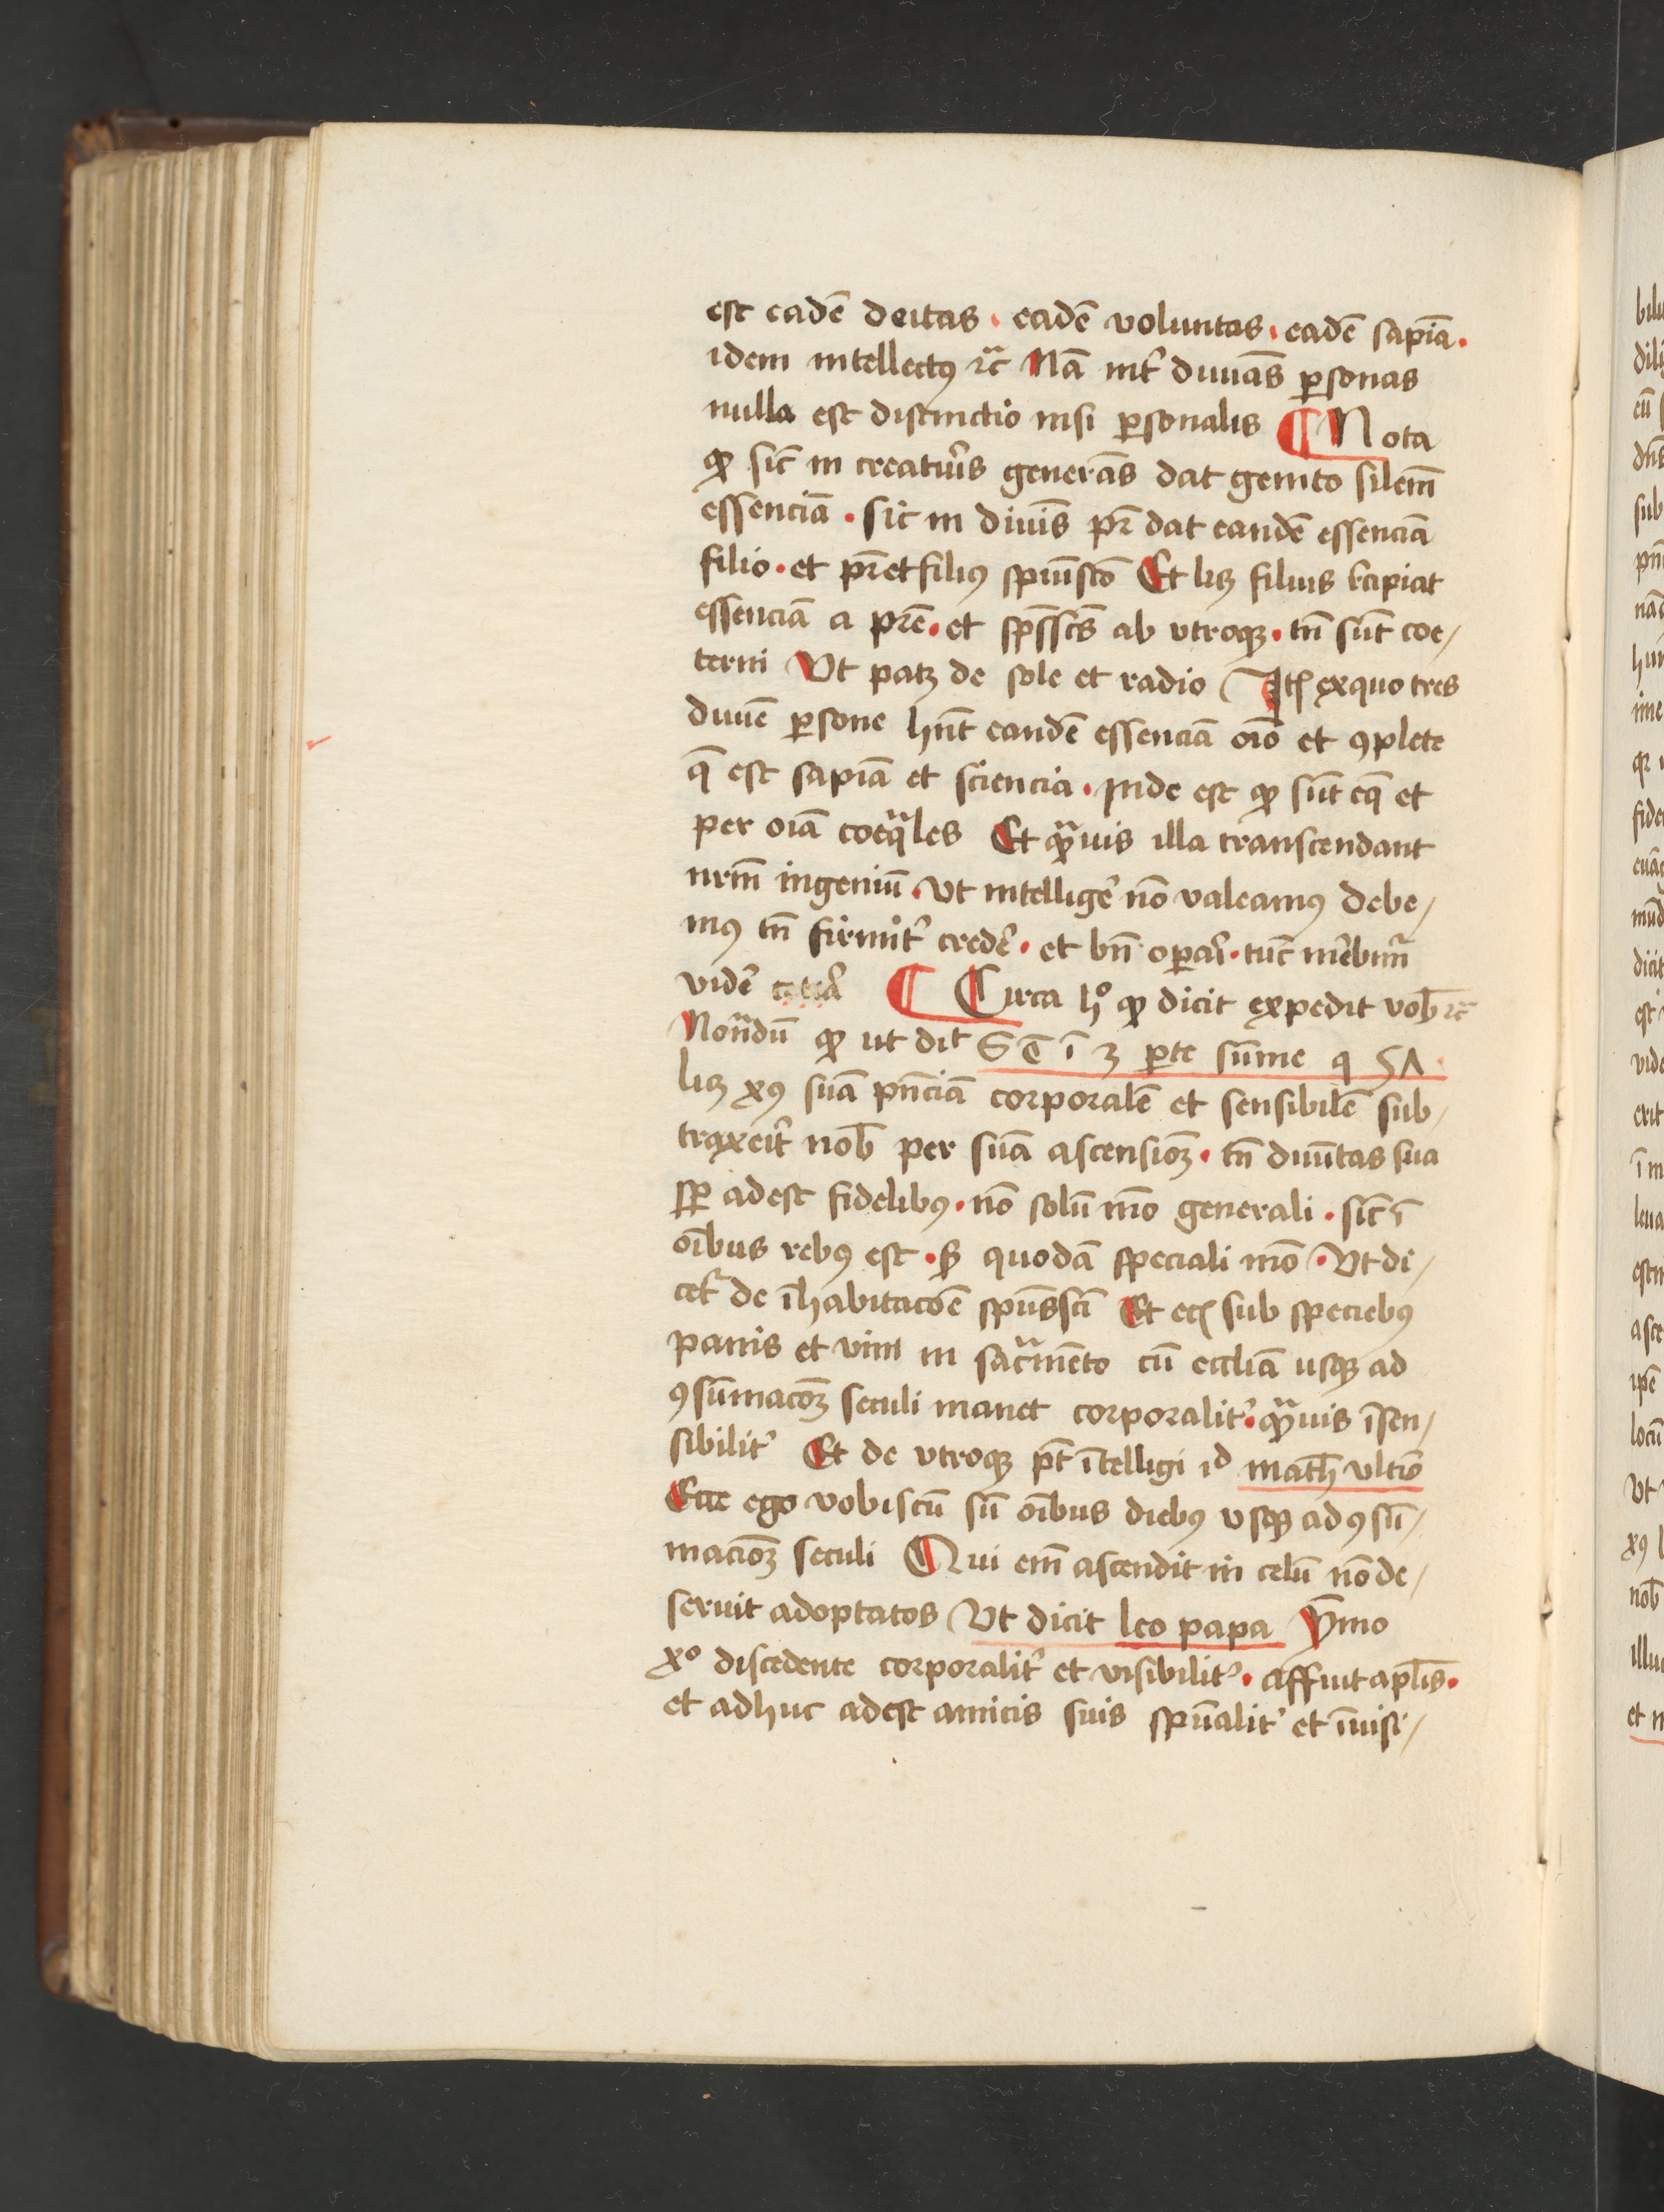 est eadē deitas · eadē voluntas · eadē sapīa ·
idem intellectꝰ ⁊c̄ Nā int̾ diuīas ꝑsonas
nulla est distinctio nisi ꝑsonalis ¶ Nota
ꝙ sic̄ in creatur̾is generās dat genito sil̄em̄
essenciā · sic in diuīs pr̄ dat eandē essenciā
filio · et pr̄ et filiꝰ spiuīscō Et lꝫ filius recipiat
essenciā a pr̄e · et sp̄ssc̄s ab vtroqꝫ · tn̄ sūt coe/
terni Vt patꝫ de sole et radio Itē exquo tres
diuīe ꝑsone hn̄t eandē essenciā oīo et ꝯplete
q̄ est sapīa et sciencia · Inde est ꝙ sūt eq̄ et
per oīa coeq̄les Et qͣuis illa transcendant
nr̄m̄ ingeniū · Vt intellige̾ nō valeamꝰ debe/
mꝰ tn̄ firmit̾ crede̾ · et bn̄ oꝑari · tūc mēbim̄
vide̾ ¶ Circa hͦ ꝙ dicit expedit vob̄ ⁊c̄
Nonͣdū ꝙ ut dit S t̄ ī 3 ꝑte sūme q 5Λ ·
lꝫ xꝰ suā pn̄ciā corporalē et sensibilē sub/
traxeit̾ nob̄ per suā ascensiōꝫ · tn̄ diuītas sua
sꝑ adest fidelibꝰ · nō solū mō generali · sic̄ ī
oībus rebꝰ est · sꝫ quodā speciali mō · Vt di/
cet̾ de īhabitacōe spūssc̄i Et eciā sub speciebꝰ
panis et vini in sacͣmēto cū eccliā usqꝫ ad
ꝯsūmacōꝫ seculi manet corporalit̾ · qͣuis īsen/
sibilit̾ Et de vtroqꝫ pt̄ ītelligi id math̄ vltīo
Ecce ego vobiscū sū oībus diebꝰ vsqꝫ ad ꝯsū/
maciōꝫ seculi Qui em̄ ascendit in celū nō de/
seruit adoptatos Vt dicit leo papa Ȳmo
xͦ discedente corporalit̾ et visibilit̾ · affuit apl̄is ·
et adhuc adest amicis suis spūalit̾ et īuisi/